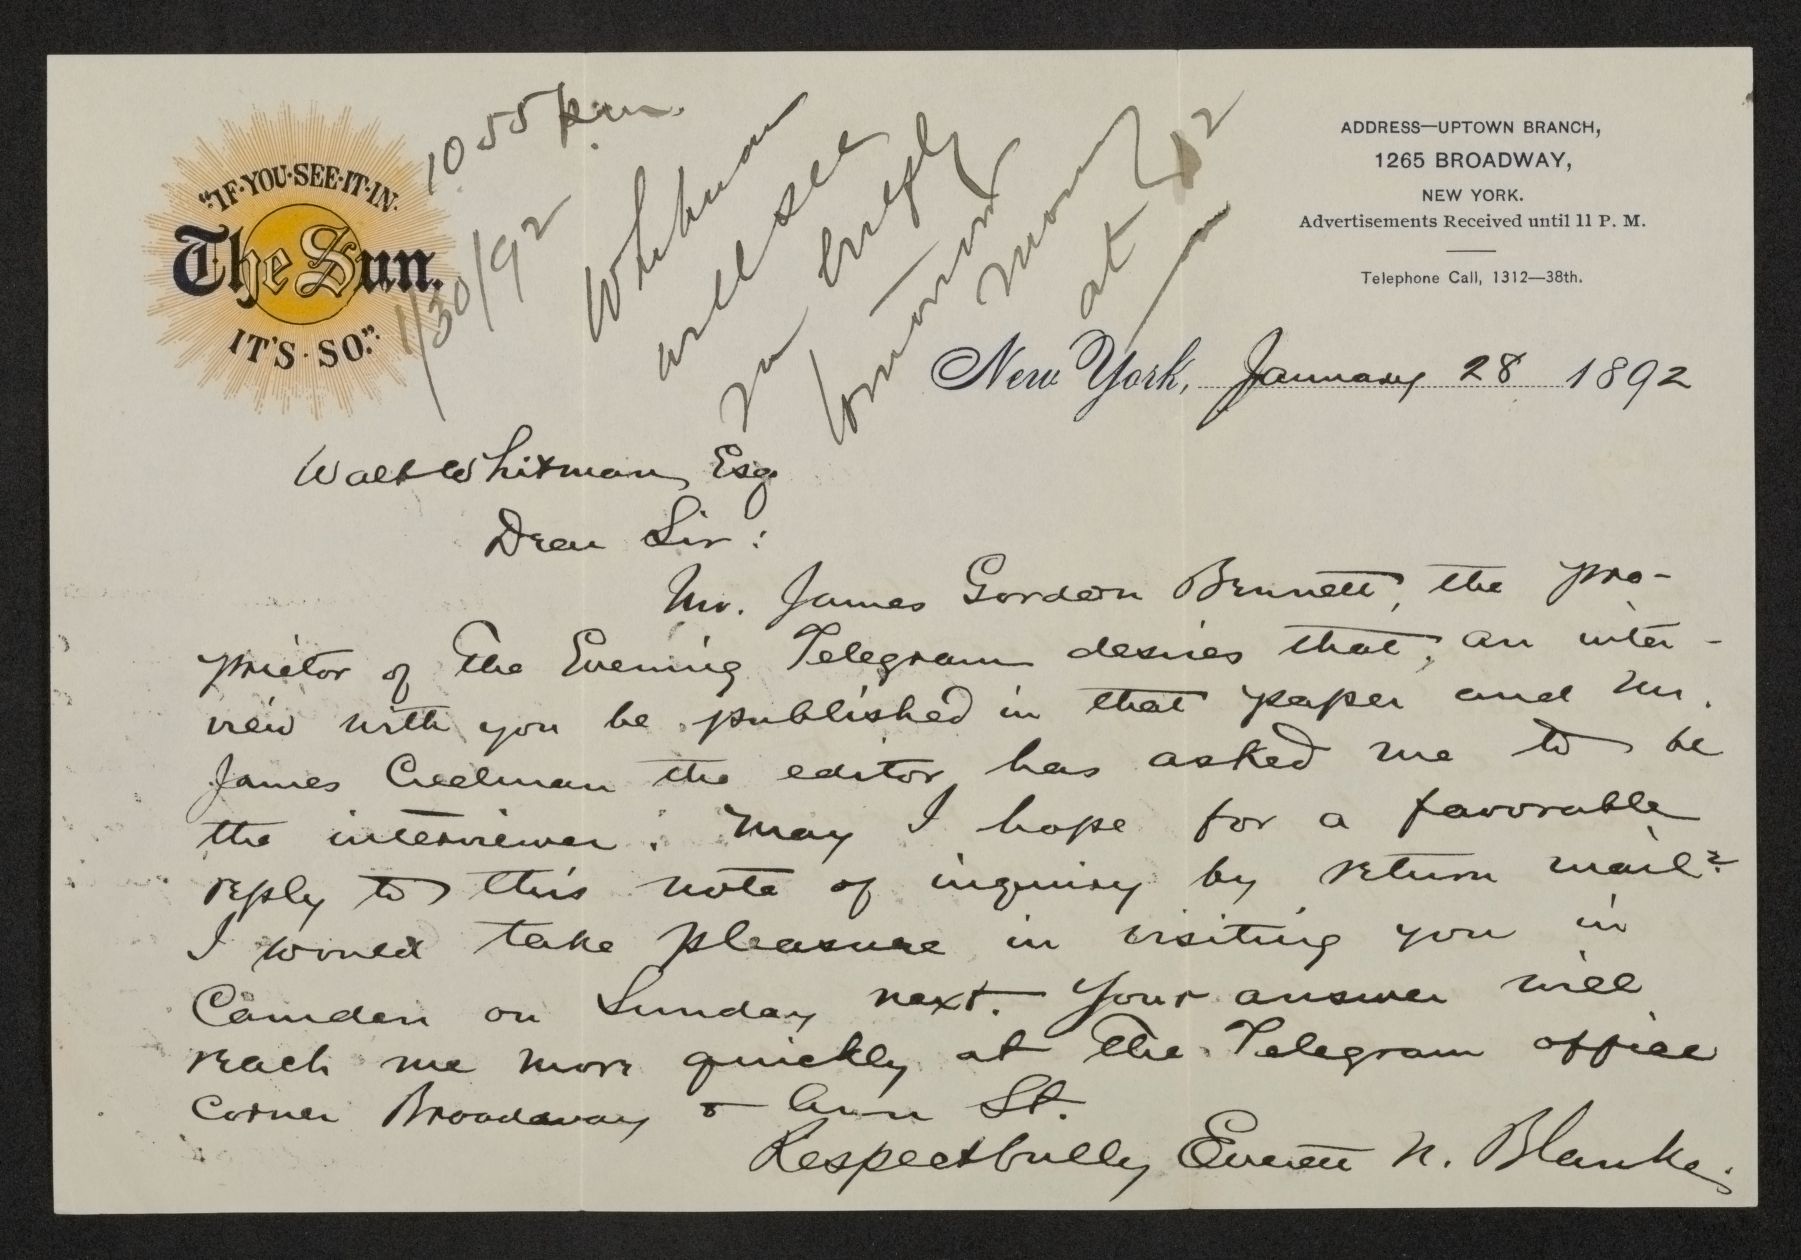 "IF·YOU·SEE·IT·IN
The Sun.
IT'S·SO."
ADDRESS—UPTOWN BRANCH,
1265 BROADWAY,
NEW YORK.
Advertisements Received until 11 P. M.
Telephone Call, 1312—38th.
10 55 p.m.
1/30/92
Whitman
will see
briefly
morn
at 12
New York, January 28 1892
Walt Whitman, Esq
Dear Sir:
Mr. James Gordon Bennett, the pro-
prietor of The Evening Telegram desires that, an inter-
view with you be published in that paper and Mr.
James Creelman the editor, has asked me to be
the interviewer. May I hope for a favorable
reply to this note of inquiry by return mail?
I would take pleasure in visiting you in
Camden on Sunday next. Your answer will
reach me more quickly at The Telegram office
corner Broadway & Ann St.
Respectfully Everett N. Blanke.